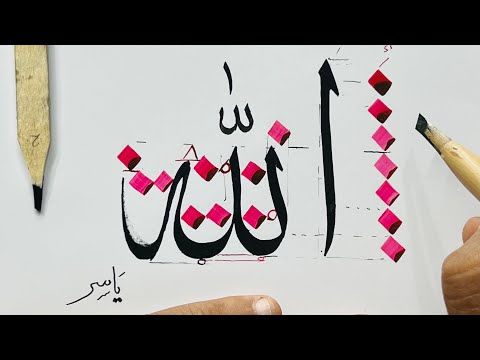 اللّٰه
يَاسِر